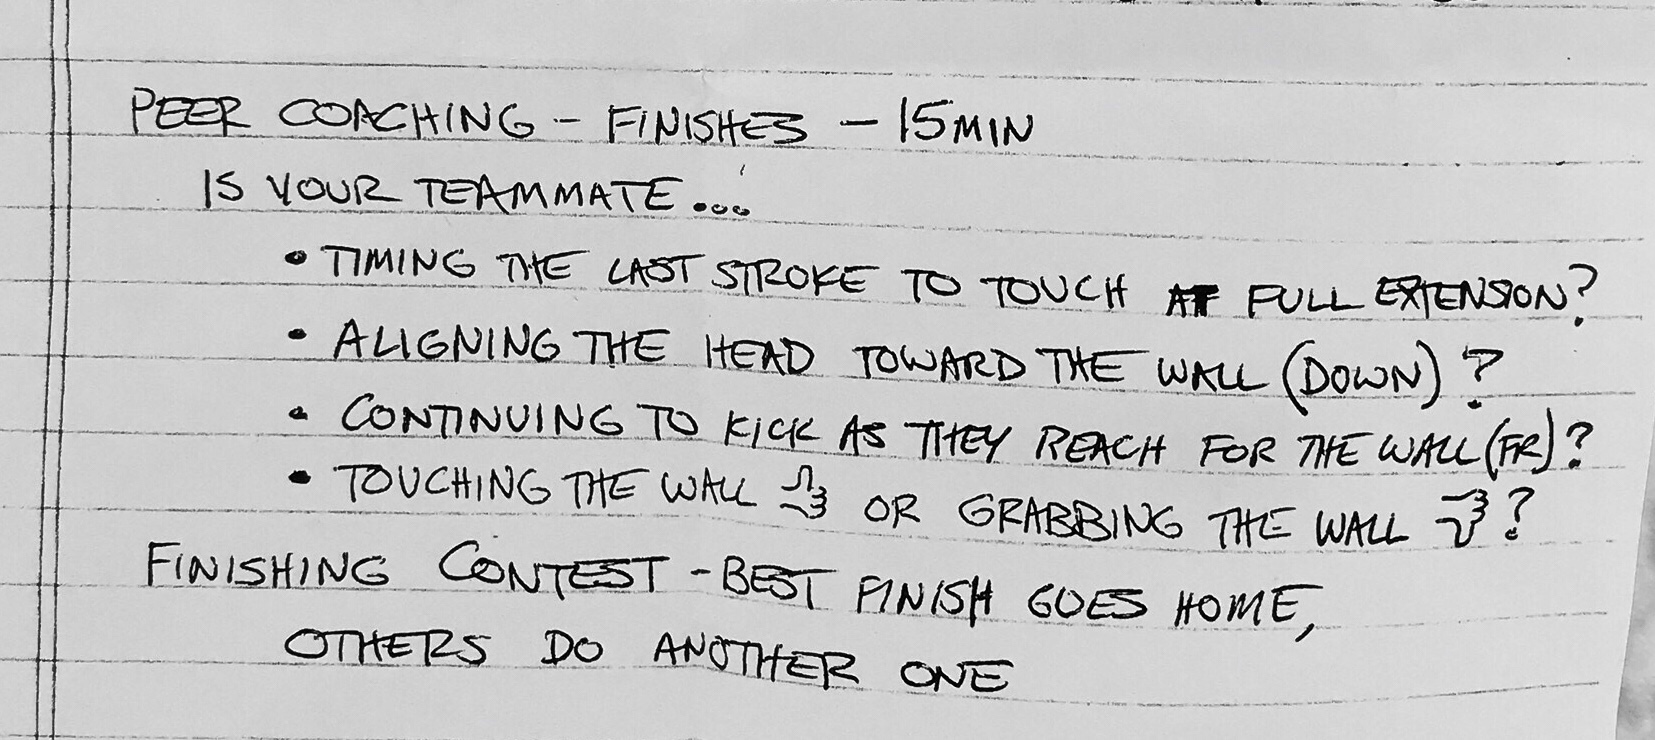 PEER COACHING - FINISHES - 15MIN
IS YOUR TEAMMATE...
• TIMING THE LAST STROKE TO TOUCH AT FULL EXTENSION?
• ALIGNING THE HEAD TOWARD THE WALL (DOWN)?
• CONTINUING TO KICK AS THEY REACH FOR THE WALL (FR)?
• TOUCHING THE WALL OR GRABBING THE WALL ?
FINISHING CONTEST - BEST FINISH GOES HOME,
OTHERS DO ANOTHER ONE